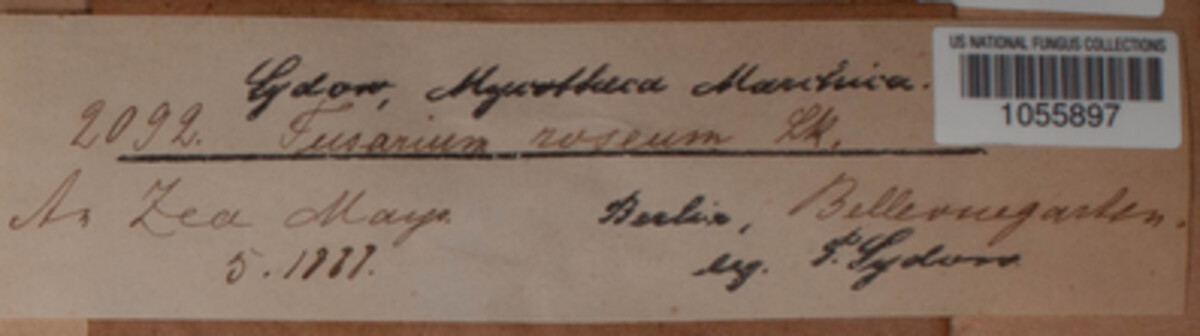 Sydow, Mycotheca Marchica.
US NATIONAL FUNGUS COLLECTIONS
1055897
2092. Fusarium roseum Lk.
An Zea Mays. Berlin, Bellevuegarten.
5. 1888. leg. P. Sydow